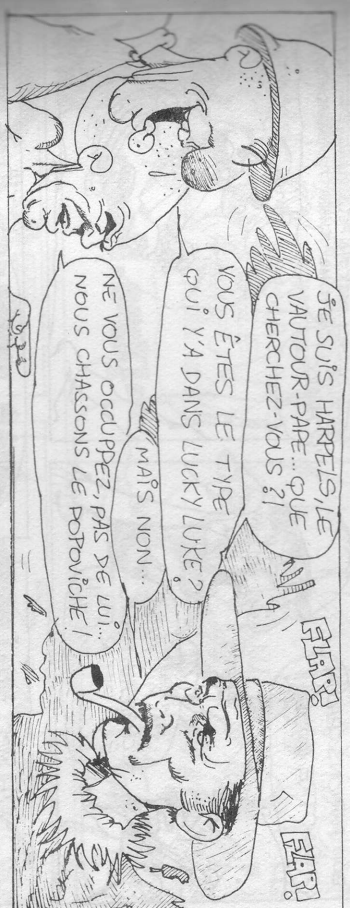 JE SUIS HARPELS, LE
VAUTOUR-PAPE... QUE
CHERCHEZ-VOUS ?!
VOUS ÊTES LE TYPE
QUI Y'A DANS LUCKY LUKE ?
MAIS NON...
NE VOUS OCCUPPEZ, PAS DE LUI..
NOUS CHASSONS LE POPOVICHE !
FLAP!
FLAP!